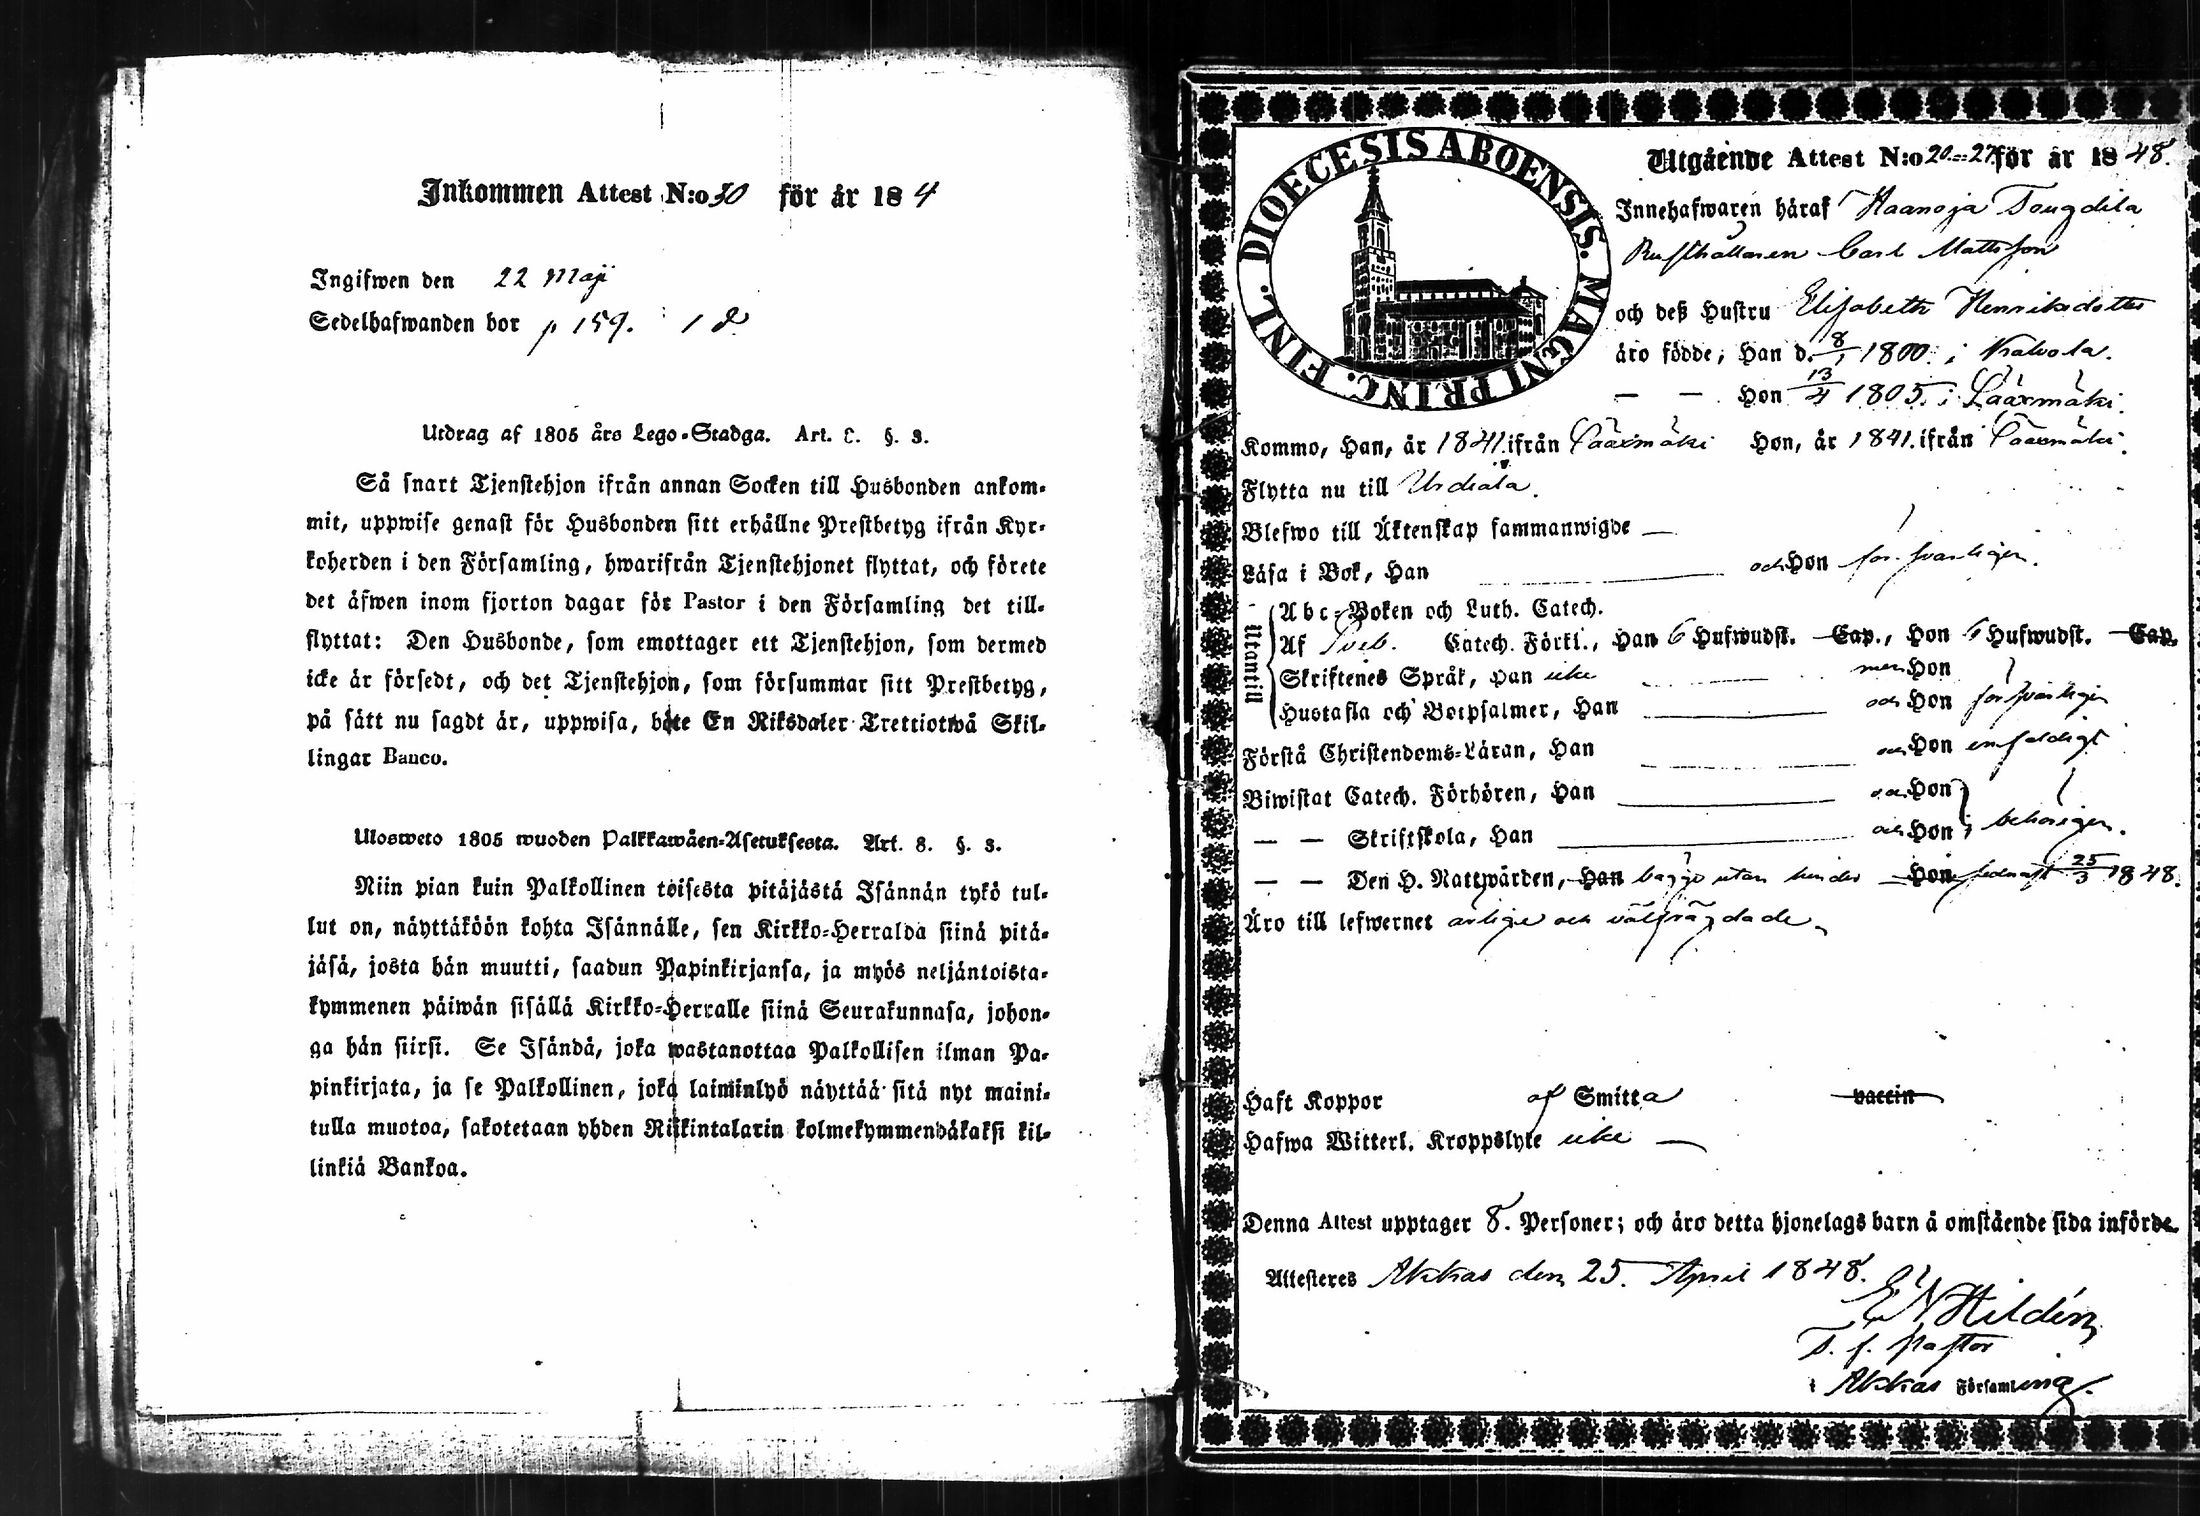 Inkommen Attest N:o 30 för år 184
Ingifwen den 22 Maji
Sedelhafwanden bor p 159.
Utdrag af 1805 års Lego-Stadga. Art. §. 3.
Så snart Tjenstehjon ifrån annan Socken till Husbonden ankom-
mit, uppwise genast för Husbonden sitt erhållne Prestbetyg ifrån Kyr-
koherden i den Församling, hwarifrån Tjenstehjonet flyttat, och förete
det äfwen inom fjorton dagar för Pastor i den Församling det till-
flyttat: Den Husbonde, som emottager ett Tjenstehjon, som dermed
icke är försedt, och det Tjenstehjon, som försummar sitt Prestbetyg,
på sätt nu sagdt är, uppwisa, böte En Riksdaler Trettiotwå Skil-
lingar Banco.
Ulosweto 1805 wuoden Palkkawäen-Asetuksesta. Art. 8. §. 3.
Niin pian kuin Palkollinen toisesta pitäjästä Isännän tykö tul-
lut on, näyttäköön kohta Isännälle, sen Kirkko-Herralda siinä pitä-
jäsä, josta hän muutti, saadun Papinkirjansa, ja myös neljäntoista-
kymmenen päiwän sisällä Kirkko-Herralle siinä Seurakunnasa, johon-
ga hän siirsi. Se Isändä, joka wastanottaa Palkollisen ilman Pa-
pinkirjata, ja se Palkollinen, joka laiminlyö näyttää sitä nyt maini-
tulla muotoa, sakotetaan yhden Riikintalarin kolmekymmendäkaksi kil-
linkiä Bankoa.
DIOECESIS ABOENSIS. MAGNI PRINC. FINL.
Utgående Attest N:o 20-27 för år 1848.
Innehafwaren häraf Haanoja
Rusthållaren Carl Mattsson
och deß Hustru Elisabeth Henriksdotter
äro födde, Han d. 8/1 1800 i Kalvola.
— — Hon 13/4 1805 i Sääxmäki.
Kommo, Han, år 1841 ifrån Sääxmäki Hon, år 1841. ifrån Sääxmäki.
Flytta nu till Urdiala.
Blefwo till Äktenskap sammanwigde —
Läsa i Bok, Han och Hon försvarligen.
Utantill
Abc-Boken och Luth. Catech.
Af Sveb. Catech. Förkl., Han 6 Hufwudst. Cap., Hon 6 Hufwudst. Cap.
Skriftenes Språk, Han icke mer Hon
Hustafla och Botpsalmer, Han och Hon försvarligen
Förstå Christendoms-Läran, Han och Hon enfaldigt
Biwistat Catech. Förhören, Han och Hon
— — Skriftskola, Han och Hon behörigen.
— — Den H. Nattwarden, Han bägge utan hinder Hon sednast 25/3 1848.
Äro till lefwernet ärlige och välfrägdade.
Haft Koppor af Smitta vaccin
Hafwa Witterl. Kroppslyte icke —
Denna Attest upptager 8. Personer; och äro detta hjonelags barn å omstående sida införde.
Attesteres Akkas den 25. April 1848.
E N Hildén
T. f. Pastor
i Akkas Församling.